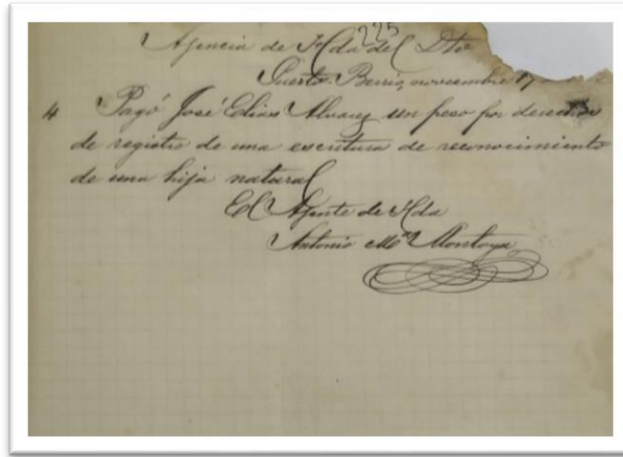 225
Agencia de Hda del Dto
Puerto Berrío, noviembre 17
4 Pagó José Elías Alvarez un peso por derechos
de registro de una escritura de reconocimiento
de una hija natural
El Agente de Hda
Antonio Mª Montoya